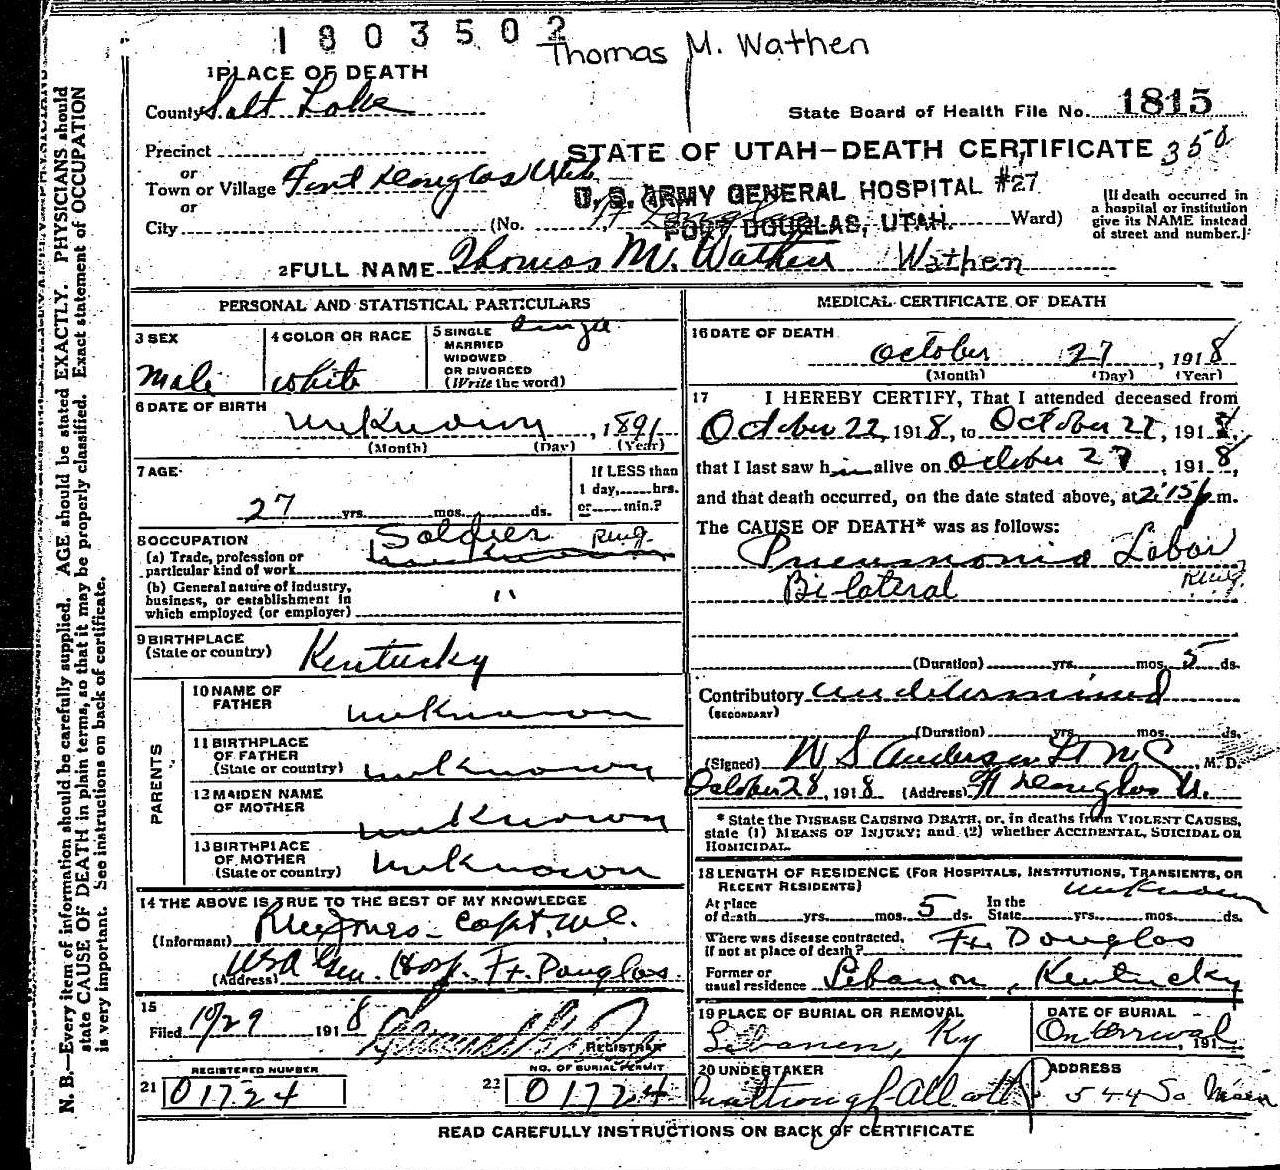 1803502
Thomas M. Wathen
1 PLACE OF DEATH
County Salt Lake
State Board of Health File No. 1815
Precinct
STATE OF UTAH—DEATH CERTIFICATE 350
or
Town or Village Fort Douglas Utah
U. S. ARMY GENERAL HOSPITAL #27
FORT DOUGLAS, UTAH.
or
City (No. Ft Douglas Ward)
[If death occurred in
a hospital or institution
give its NAME instead
of street and number.]
2 FULL NAME Thomas M. Wathen Wathen
PERSONAL AND STATISTICAL PARTICULARS
3 SEX
Male
4 COLOR OR RACE
white
5 SINGLE
MARRIED
WIDOWED
OR DIVORCED
(Write the word)
Single
6 DATE OF BIRTH
unknown, 1891
(Month) (Day) (Year)
7 AGE
27 yrs. mos. ds.
If LESS than
1 day, hrs.
or min.?
8 OCCUPATION
(a) Trade, profession or
particular kind of work
Soldier
(b) General nature of industry,
business, or establishment in
which employed (or employer)
"
9 BIRTHPLACE
(State or country)
Kentucky
PARENTS
10 NAME OF
FATHER
unknown
11 BIRTHPLACE
OF FATHER
(State or country)
unknown
12 MAIDEN NAME
OF MOTHER
unknown
13 BIRTHPLACE
OF MOTHER
(State or country)
unknown
14 THE ABOVE IS TRUE TO THE BEST OF MY KNOWLEDGE
(Informant) Jones - Capt. M.C.
(Address) USA Gen. Hosp. Ft. Douglas.
15
Filed 10/29 1918
REGISTRAR
REGISTERED NUMBER
21 01724
NO. OF BURIAL PERMIT
22 01724
MEDICAL CERTIFICATE OF DEATH
16 DATE OF DEATH
October 27, 1918
(Month) (Day) (Year)
17 I HEREBY CERTIFY, That I attended deceased from
October 22, 1918, to October 27, 1918,
that I last saw him alive on October 27, 1918,
and that death occurred, on the date stated above, at 2:15 p m.
The CAUSE OF DEATH* was as follows:
Pneumonia Lobar
Bilateral
(Duration) yrs. mos. 5 ds.
Contributory undetermined
(SECONDARY)
(Duration) yrs. mos. ds.
(Signed) W S Anderson Lt M C, M. D.
October 28, 1918 (Address) Ft Douglas U.
* State the DISEASE CAUSING DEATH, or, in deaths from VIOLENT CAUSES,
state (1) MEANS OF INJURY; and (2) whether ACCIDENTAL, SUICIDAL OR
HOMICIDAL.
18 LENGTH OF RESIDENCE (FOR HOSPITALS, INSTITUTIONS, TRANSIENTS, OR
RECENT RESIDENTS)
unknown
At place
of death yrs. mos. 5 ds.
In the
State yrs. mos. ds.
Where was disease contracted,
if not at place of death? Ft. Douglas
Former or
usual residence Lebanon, Kentucky
19 PLACE OF BURIAL OR REMOVAL
Lebanon, Ky
DATE OF BURIAL
On arrival, 191
20 UNDERTAKER
ADDRESS
544 So Main
READ CAREFULLY INSTRUCTIONS ON BACK OF CERTIFICATE
N. B.—Every item of information should be carefully supplied. AGE should be stated EXACTLY. PHYSICIANS should
state CAUSE OF DEATH in plain terms, so that it may be properly classified. Exact statement of OCCUPATION
is very important. See instructions on back of certificate.